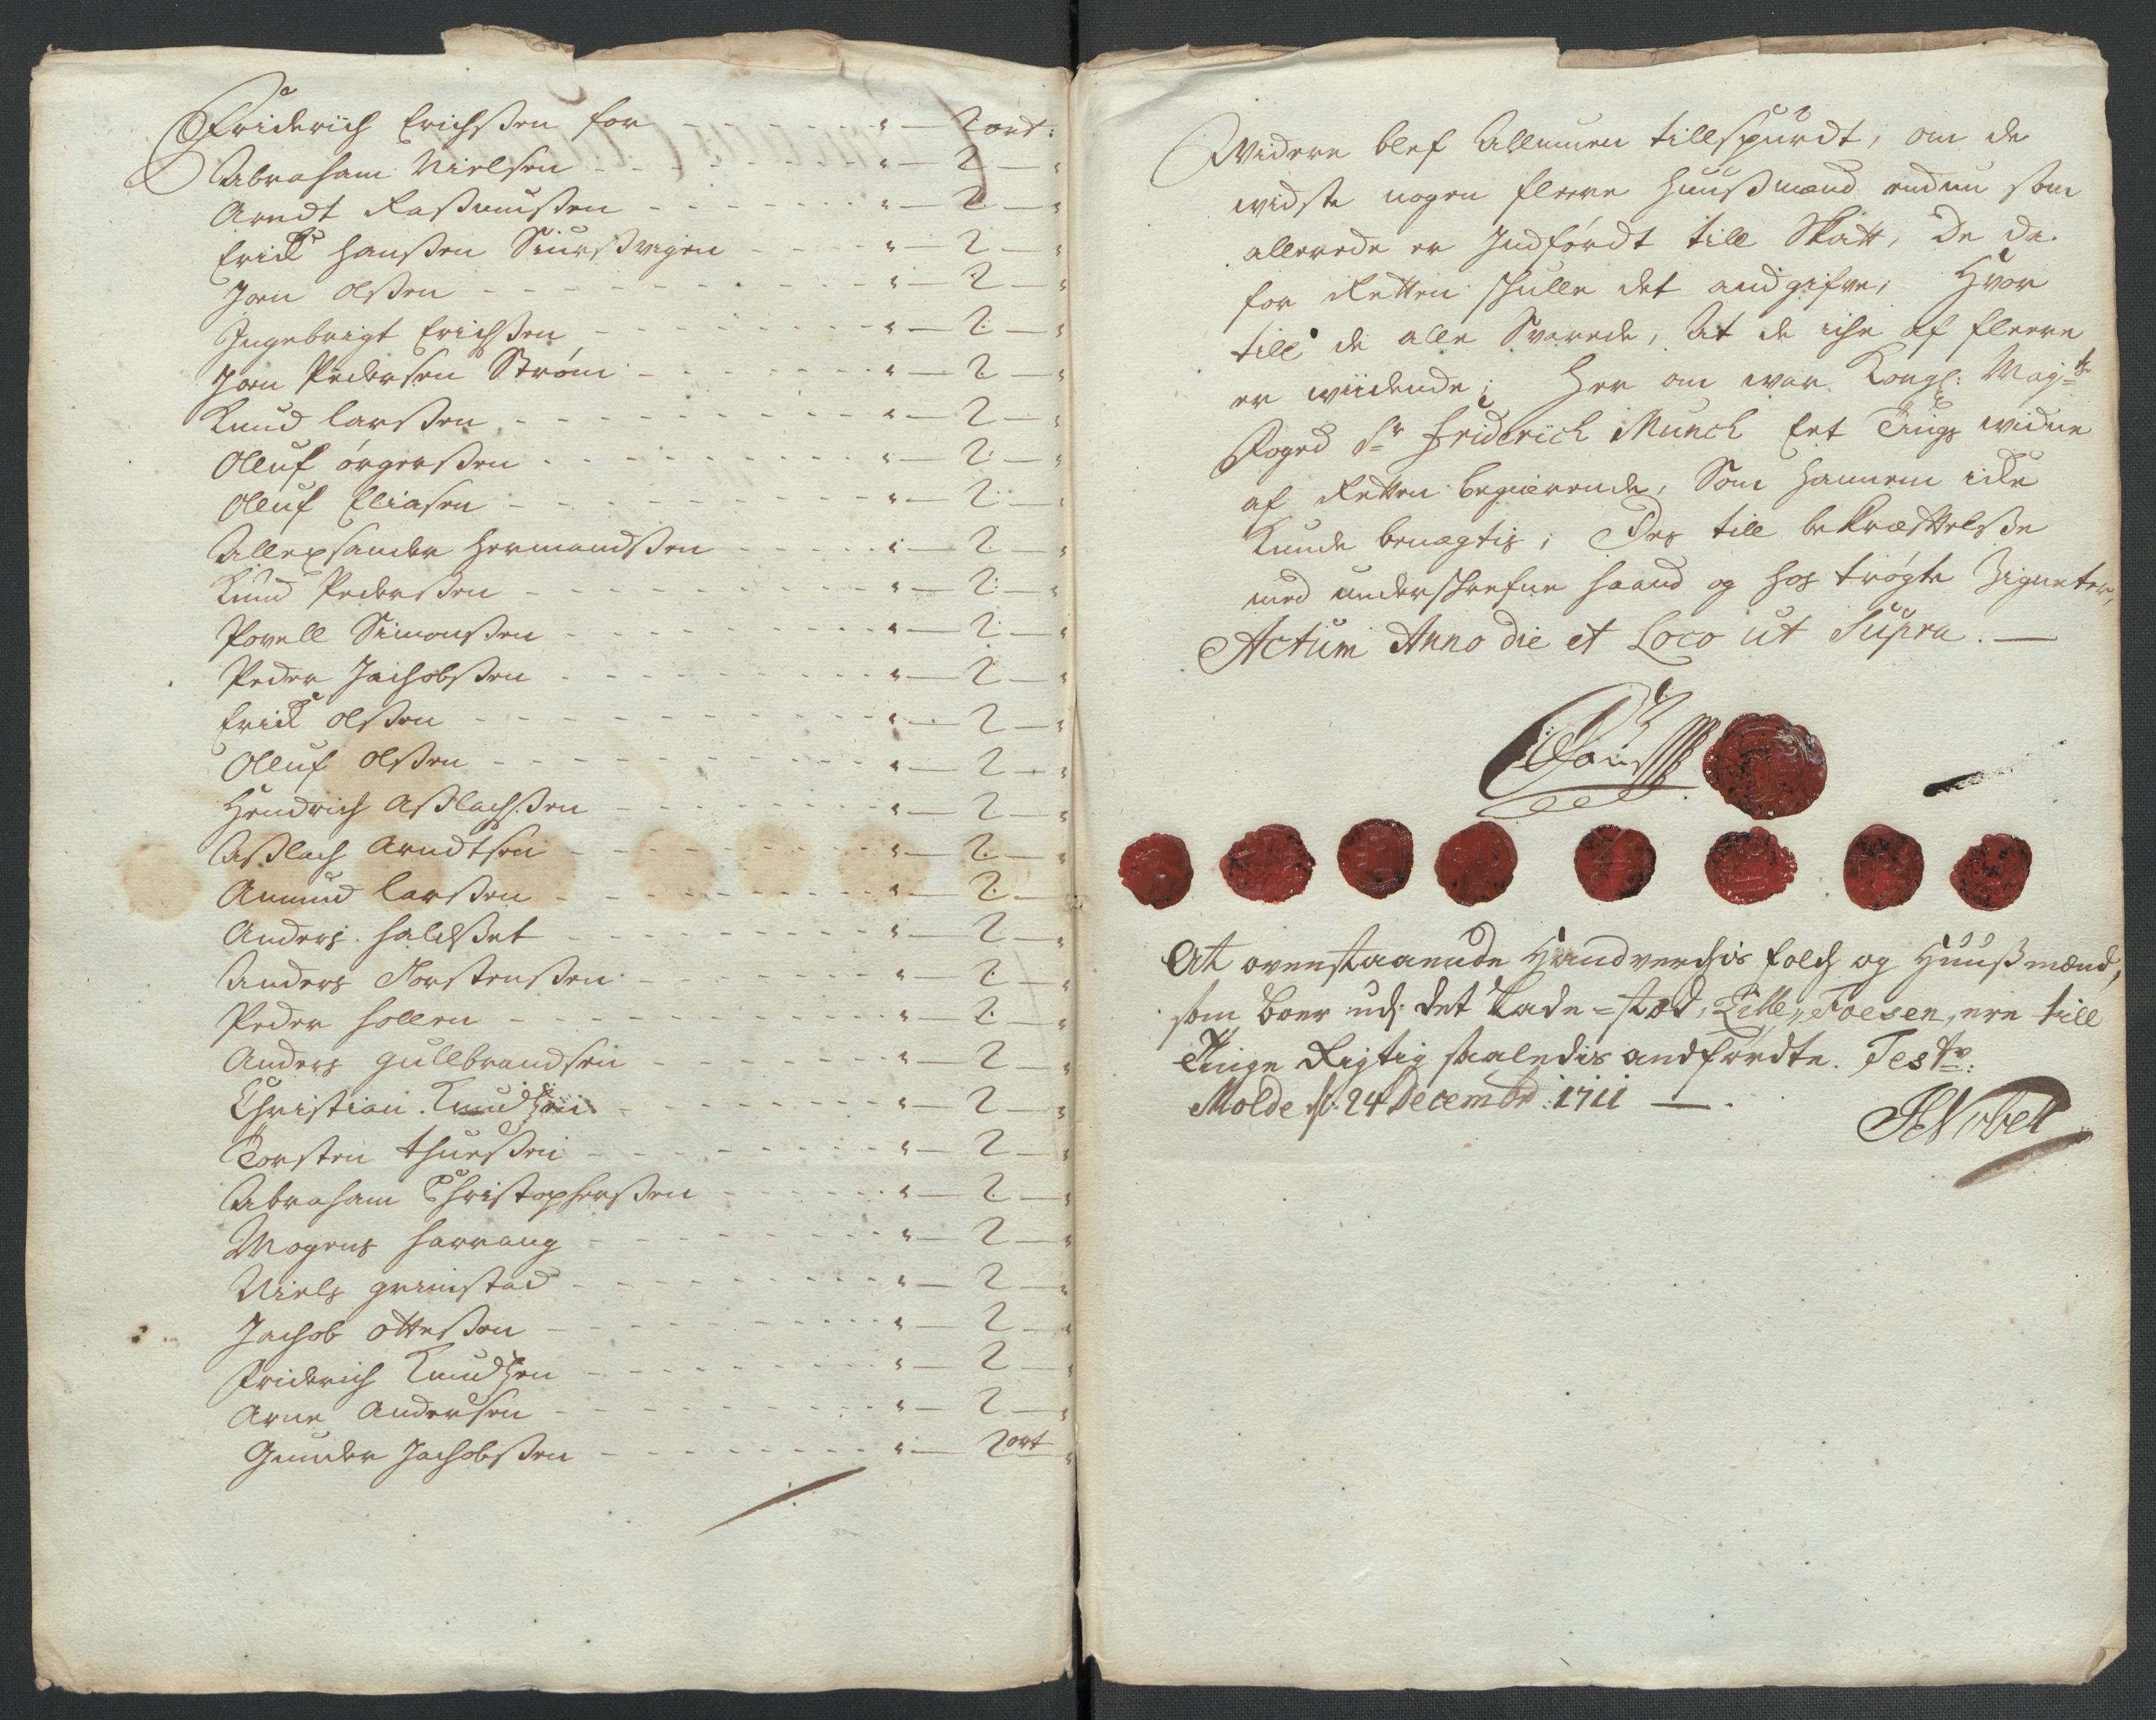 Friderich Erichssen for - - - " — 2 ort:
Abraham Nielsen - - - " — 2 — "
Arndt Rassmussen - - - " — 2 — "
Erick Hanssen Siursvigen - - - " — 2 — "
Joen Olssen - - - " — 2 — "
Ingebrigt Erichssen - - - " — 2 — "
Joen Pedersen Strøm - - - " — 2 — "
Knud Larssen - - - " — 2 — "
Olluf Ørgerssen - - - " — 2 — "
Olluf Eliasen - - - " — 2 — "
Allexsander Hermandssen - - - " — 2 — "
Knud Pederssen - - - " — 2 — "
Povell Simonssen - - - " — 2 — "
Peder Jachobssen - - - " — 2 — "
Erick Olssen - - - " — 2 — "
Olluf Olssen - - - " — 2 — "
Hendrich Asslachssen - - - " — 2 — "
Asslach Arndtsen - - - " — 2 — "
Amund Larssen - - - " — 2 — "
Anders Halsset - - - " — 2 — "
Anders Torstenssen - - - " — 2 — "
Peder Hollen - - - " — 2 — "
Anders Gullbrandsen - - - " — 2 — "
Christian Knudtzen - - - " — 2 — "
Torsten Thuessen - - - " — 2 — "
Abraham Christopherssen - - - " — 2 — "
Mogens Harrang - - - " — 2 — "
Niels Grimstad - - - " — 2 — "
Jachob Ottessen - - - " — 2 — "
Friderich Knudtzen - - - " — 2 — "
Arne Andersen - - - " — 2 — "
Gunder Jachobssen - - - " — 2 ort "
Widere blef Allmuen tillspurdt, om de
widste nogen fleere Huussmænd endnu som
allerede er Indførdt till Skatt, De da
for Retten schulle det andgifve, Hvor
till de alle Svarede, At de iche af fleere
er wiidende; Her om war Kongl: Mayts
Foged Sr Friderich Munch Eet Tings widne
af Retten begierende, Som hannem icke
Kunde benægtis; Des till bekræftelsse
med underschrefne haand og hos trøgte Zigneter,
Actum Anno die et Loco ut Supra. —
At ovenstaaende Handverchis folch og Huussmænd,
som boer udj det Lade-sted, Lille Foesen, ere till
Tinge Rigtig saaledis andførdte. Test:
Molde d: 24 Decembr: 1711 —